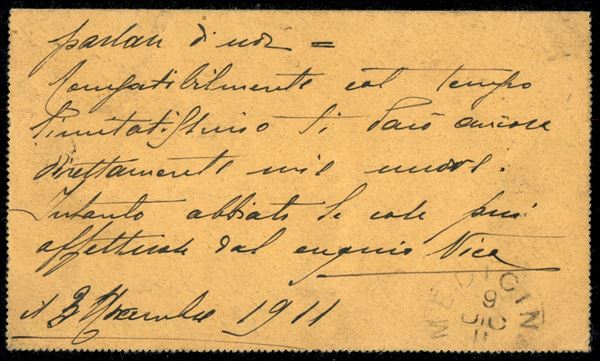 parlar di noi =
Compatibilmente col tempo
limitatissimo ti darò ancora
direttamente mie nuove.
Intanto abbiati le cose più
affettuose dal cugino Nica
il 3 Dicembre 1911
MEDICINA
9
DIC
11